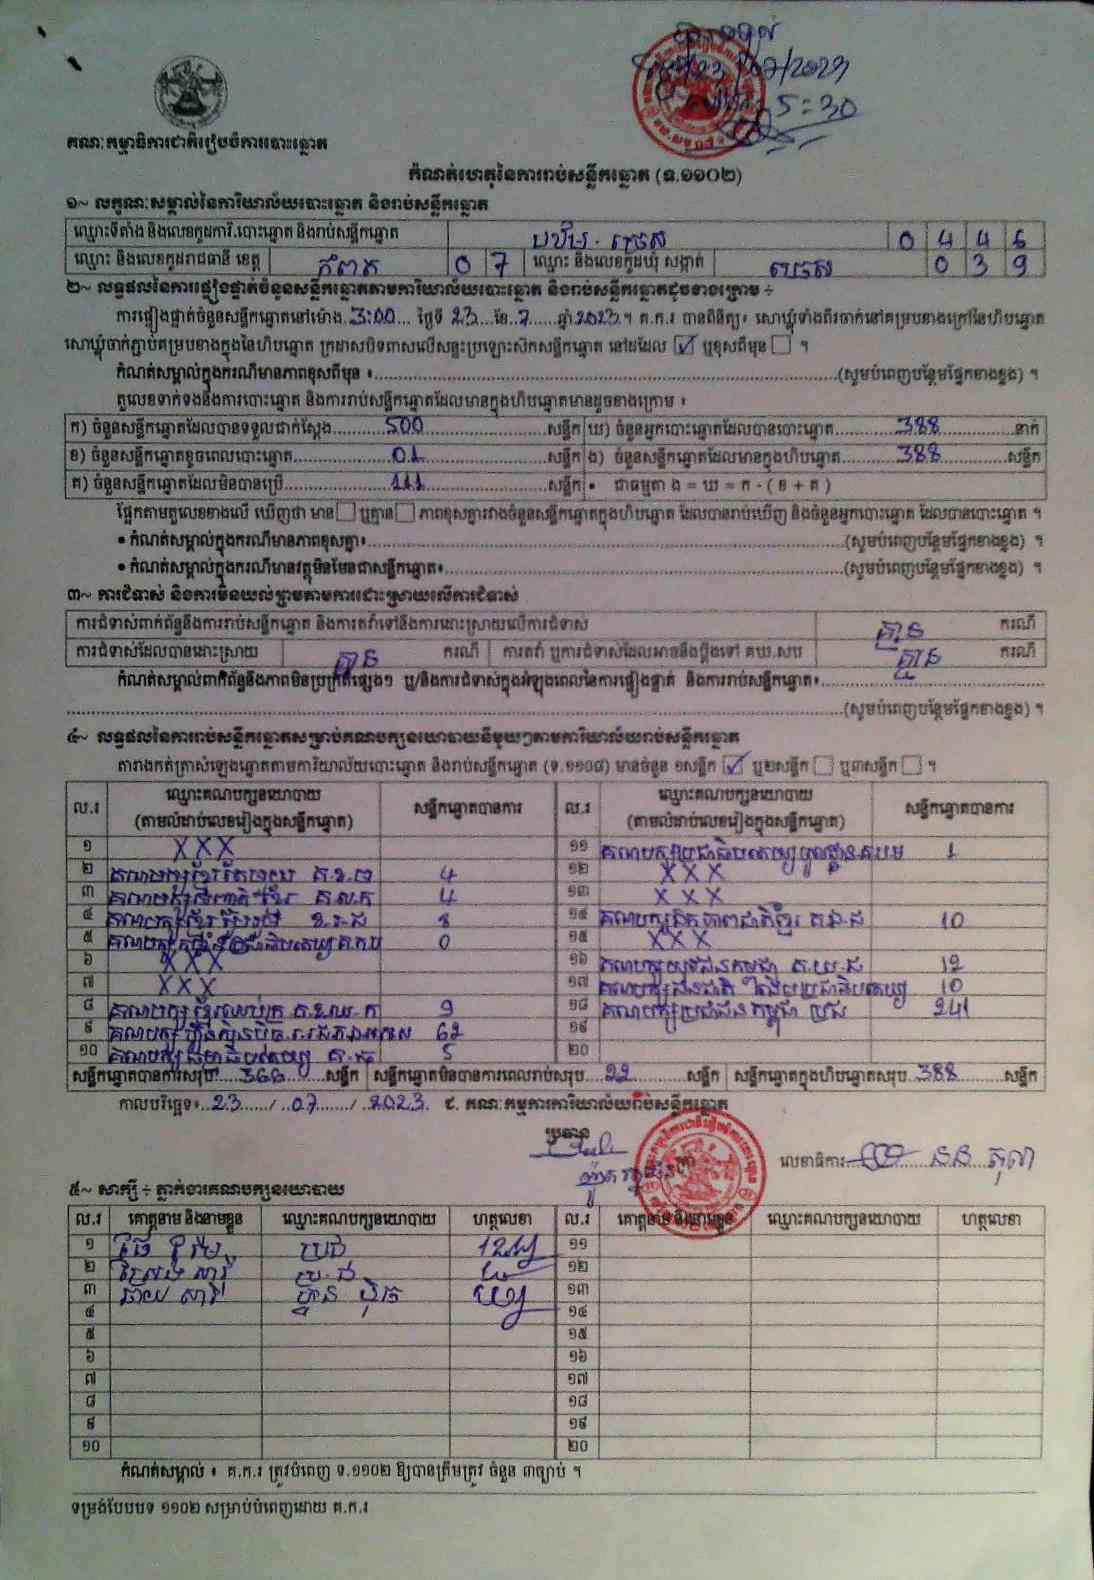 5:30
គណៈកម្មាធិការជាតិរៀបចំការបោះឆ្នោត
កំណត់ហេតុនៃការរាប់សន្លឹកឆ្នោត (ទ.១១០២)
១~ លក្ខណៈសម្គាល់នៃការិយាល័យបោះឆ្នោត និងរាប់សន្លឹកឆ្នោត
ឈ្មោះទីតាំង និងលេខកូដការិ.បោះឆ្នោត និងរាប់សន្លឹកឆ្នោត 0 4 4 6
ឈ្មោះ និងលេខកូដរាជធានី ខេត្ត កំពត 0 7 ឈ្មោះ និងលេខកូដឃុំ សង្កាត់ 0 3 9
២~ លទ្ធផលនៃការផ្ទៀងផ្ទាត់ចំនួនសន្លឹកឆ្នោតតាមការិយាល័យបោះឆ្នោត និងរាប់សន្លឹកឆ្នោតដូចខាងក្រោម ÷
ការផ្ទៀងផ្ទាត់ចំនួនសន្លឹកឆ្នោតនៅម៉ោង 3:00 ថ្ងៃទី 23 ខែ 7 ឆ្នាំ 2023 ។ គ.ក.រ បានពិនិត្យ៖ សោឃ្មុំទាំងពីរចាក់នៅគម្របខាងក្រៅនៃហិបឆ្នោត
សោឃ្មុំចាក់ភ្ជាប់គម្របខាងក្នុងនៃហិបឆ្នោត ក្រដាសបិទពាសលើសន្ទះប្រឡោះស៊កសន្លឹកឆ្នោត នៅដដែល ✓ ឬខុសពីមុន ។
កំណត់សម្គាល់ក្នុងករណីមានភាពខុសពីមុន ៖ (សូមបំពេញបន្ថែមផ្នែកខាងខ្នង) ។
តួលេខទាក់ទងនឹងការបោះឆ្នោត និងការរាប់សន្លឹកឆ្នោតដែលមានក្នុងហិបឆ្នោតមានដូចខាងក្រោម ៖
ក) ចំនួនសន្លឹកឆ្នោតដែលបានទទួលជាក់ស្តែង 500 សន្លឹក ឃ) ចំនួនអ្នកបោះឆ្នោតដែលបានបោះឆ្នោត 388 នាក់
ខ) ចំនួនសន្លឹកឆ្នោតខូចពេលបោះឆ្នោត 01 សន្លឹក ង) ចំនួនសន្លឹកឆ្នោតដែលមានក្នុងហិបឆ្នោត 388 សន្លឹក
គ) ចំនួនសន្លឹកឆ្នោតដែលមិនបានប្រើ 111 សន្លឹក • ជាធម្មតា ង = ឃ = ក - ( ខ + គ )
ផ្អែកតាមតួលេខខាងលើ ឃើញថា មាន ឬគ្មាន ភាពខុសគ្នារវាងចំនួនសន្លឹកឆ្នោតក្នុងហិបឆ្នោត ដែលបានរាប់ឃើញ និងចំនួនអ្នកបោះឆ្នោត ដែលបានបោះឆ្នោត ។
• កំណត់សម្គាល់ក្នុងករណីមានភាពខុសគ្នា៖ (សូមបំពេញបន្ថែមផ្នែកខាងខ្នង) ។
• កំណត់សម្គាល់ក្នុងករណីមានវត្ថុមិនមែនជាសន្លឹកឆ្នោត៖ (សូមបំពេញបន្ថែមផ្នែកខាងខ្នង) ។
៣~ ការជំទាស់ និងការមិនយល់ព្រមតាមការដោះស្រាយលើការជំទាស់
ការជំទាស់ពាក់ព័ន្ធនឹងការរាប់សន្លឹកឆ្នោត និងការតវ៉ាទៅនឹងការដោះស្រាយលើការជំទាស់ គ្មាន ករណី
ការជំទាស់ដែលបានដោះស្រាយ គ្មាន ករណី ការតវ៉ា ឬការជំទាស់ដែលអាចនឹងប្តឹងទៅ គឃ.សប គ្មាន ករណី
កំណត់សម្គាល់ពាក់ព័ន្ធនឹងភាពមិនប្រក្រតីផ្សេងៗ ឬ/និងការជំទាស់ក្នុងអំឡុងពេលនៃការផ្ទៀងផ្ទាត់ និងការរាប់សន្លឹកឆ្នោត៖
(សូមបំពេញបន្ថែមផ្នែកខាងខ្នង) ។
៤~ លទ្ធផលនៃការរាប់សន្លឹកឆ្នោតសម្រាប់គណបក្សនយោបាយនីមួយៗតាមការិយាល័យរាប់សន្លឹកឆ្នោត
តារាងកត់ត្រាសំឡេងឆ្នោតតាមការិយាល័យបោះឆ្នោត និងរាប់សន្លឹកឆ្នោត (ទ.១១០៨) មានចំនួន ១សន្លឹក ✓ ឬ២សន្លឹក ឬ៣សន្លឹក ។
ល.រ ឈ្មោះគណបក្សនយោបាយ (តាមលំដាប់លេខរៀងក្នុងសន្លឹកឆ្នោត) សន្លឹកឆ្នោតបានការ ល.រ ឈ្មោះគណបក្សនយោបាយ (តាមលំដាប់លេខរៀងក្នុងសន្លឹកឆ្នោត) សន្លឹកឆ្នោតបានការ
១ X X X ១១ គណបក្សប្រជាធិបតេយ្យមូលដ្ឋាន គ.ប.ម 1
២ 4 ១២ X X X
៣ 4 ១៣ X X X
៤ 8 ១៤ គណបក្សឯកភាពជាតិខ្មែរ គ.ឯ.ជ 10
៥ 0 ១៥ X X X
៦ X X X ១៦ គណបក្សយុវជនកម្ពុជា គ.យ.ជ 12
៧ X X X ១៧ 10
៨ 9 ១៨ គណបក្សប្រជាជនកម្ពុជា ប្រជ 241
៩ គណបក្សហ៊្វុនស៊ិនប៉ិច 62 ១៩
១០ គណបក្សធម្មាធិបតេយ្យ 5 ២០
សន្លឹកឆ្នោតបានការសរុប 366 សន្លឹក សន្លឹកឆ្នោតមិនបានការពេលរាប់សរុប 22 សន្លឹក សន្លឹកឆ្នោតក្នុងហិបឆ្នោតសរុប 388 សន្លឹក
កាលបរិច្ឆេទ៖ 23 / 07 / 2023 ៩. គណៈកម្មការការិយាល័យរាប់សន្លឹកឆ្នោត
ប្រធាន
លេខាធិការ នន តុលា
៥~ សាក្សី ÷ ភ្នាក់ងារគណបក្សនយោបាយ
ល.រ គោត្តនាម និងនាមខ្លួន ឈ្មោះគណបក្សនយោបាយ ហត្ថលេខា ល.រ គោត្តនាម និងនាមខ្លួន ឈ្មោះគណបក្សនយោបាយ ហត្ថលេខា
១ ប្រជ ១១
២ ប្រ.ជ ១២
៣ ១៣
៤ ១៤
៥ ១៥
៦ ១៦
៧ ១៧
៨ ១៨
៩ ១៩
១០ ២០
កំណត់សម្គាល់ ៖ គ.ក.រ ត្រូវបំពេញ ទ.១១០២ ឱ្យបានត្រឹមត្រូវ ចំនួន ៣ច្បាប់ ។
ទម្រង់បែបបទ ១១០២ សម្រាប់បំពេញដោយ គ.ក.រ